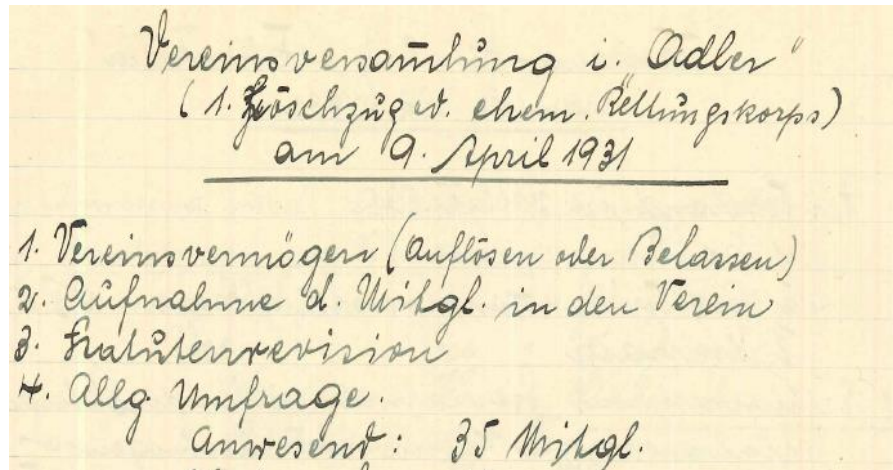 Vereinsversam̄lung i. Adler"
(1. Löschzug v. ehem. Rettungskorps)
am 9. April 1931
1. Vereinsvermögen (Auflösen oder Belassen)
2. Aufnahme d. Mitgl. in den Verein
3. Statutenrevision
4. Allg. Umfrage.
Anwesend: 35 Mitgl.